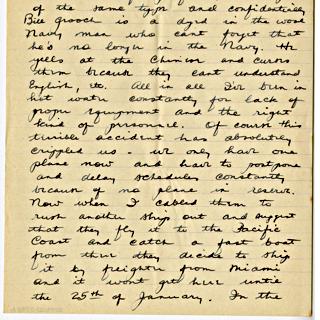 of the same type and confidentially
Bill Grooch is a dyed in the wool
Navy man who cant forget that
he's no longer in the Navy. He
yells at the Chinese and curses
them because they cant understand
English, etc. All in all I've been in
hot water constantly for lack of
proper equipment and the right
kind of personnel. Of course this
terrible accident has absolutely
crippled us - we only have one
plane now and have to postpone
and delay schedules constantly
because of no plane in reserve.
Now when I cabled them to
rush another ship out and suggest
that they fly it to the Pacific
Coast and catch a fast boat
from there they decide to ship
it by freighter from Miami
and it wont get here until
the 25th of January. In the